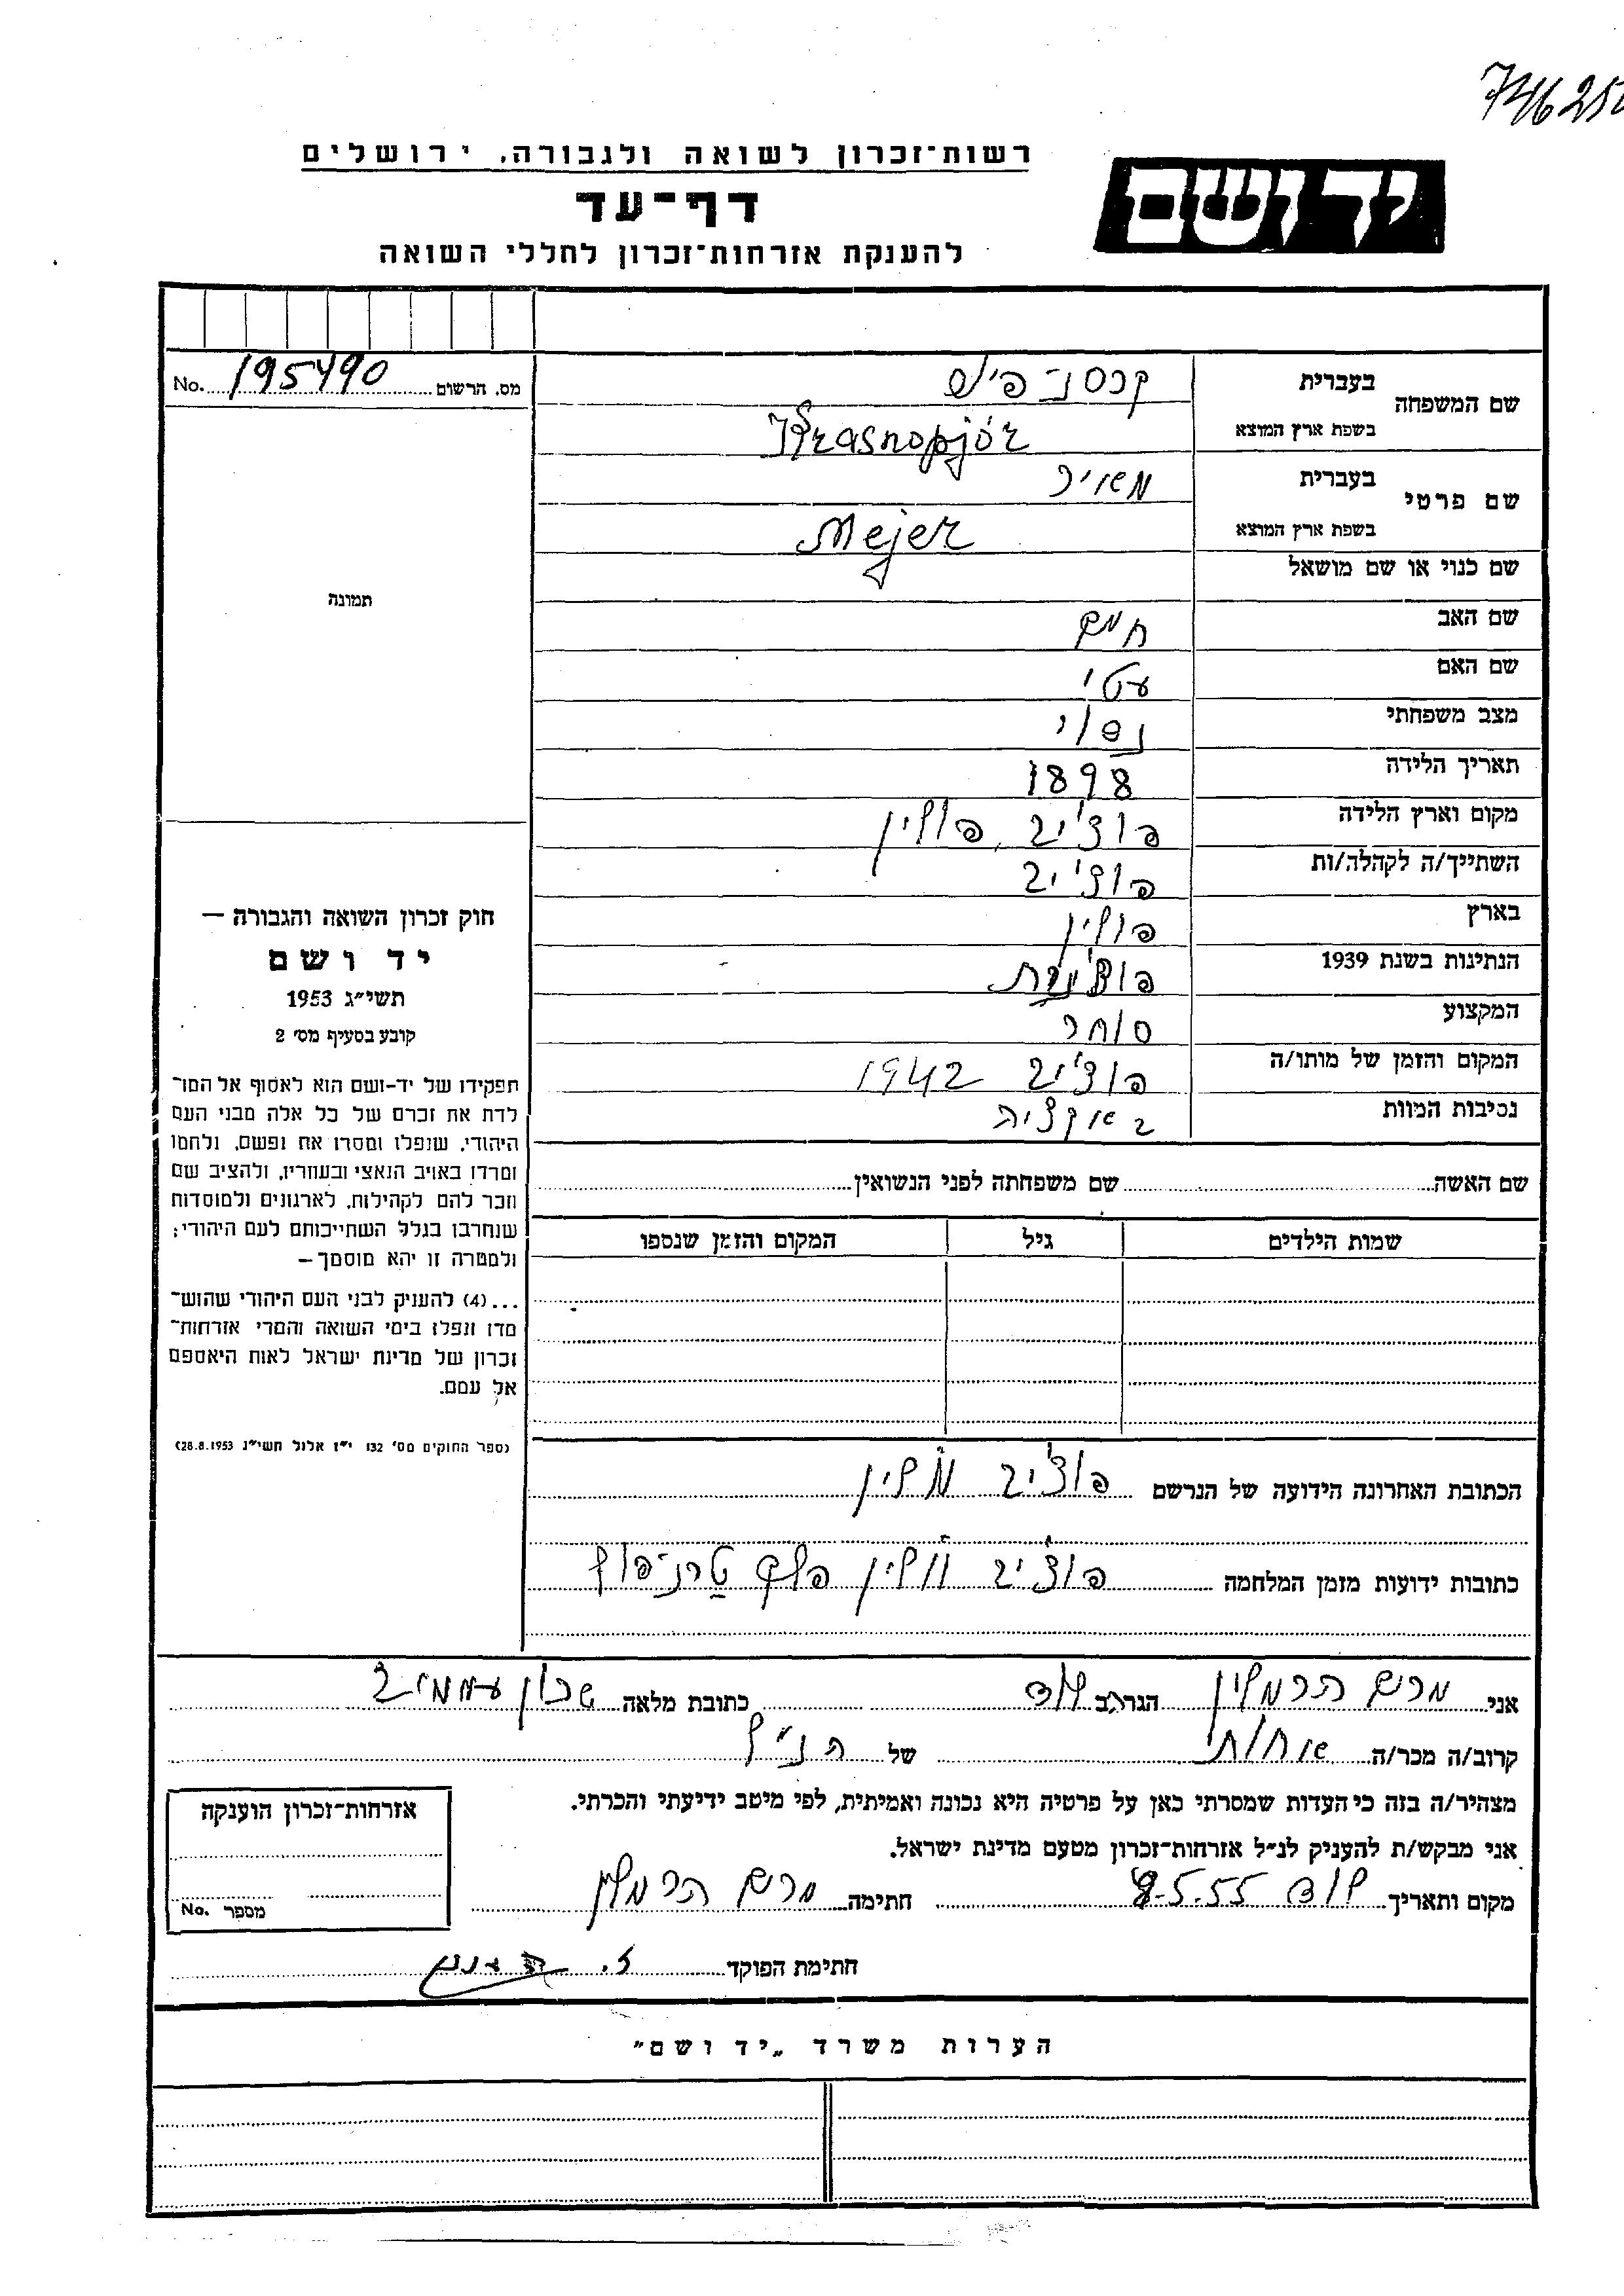 746250
רשות־זכרון לשואה ולגבורה, ירושלים
יד ושם
דף־עד
להענקת אזרחות־זכרון לחללי השואה
מס. הרשום 195490 No.
שם המשפחה
בעברית
בשפת ארץ המוצא Krasnopjór
שם פרטי
בעברית מאיר
בשפת ארץ המוצא Mejer
שם כנוי או שם מושאל
תמונה
שם האב חיים
שם האם
מצב משפחתי נשוי
תאריך הלידה 1898
מקום וארץ הלידה פוצ'יב, פולין
השתייך/ה לקהלה/ות פוצ'יב
בארץ פולין
הנתינות בשנת 1939
המקצוע סוחר
המקום והזמן של מותו/ה פוצ'יב 1942
נסיבות המוות באקציה
שם האשה שם משפחתה לפני הנשואין
שמות הילדים גיל המקום והזמן שנספו
חוק זכרון השואה והגבורה —
יד ושם
תשי״ג 1953
קובע בסעיף מס׳ 2
תפקידו של יד-ושם הוא לאסוף אל המו־
לדת את זכרם של כל אלה מבני העם
היהודי, שנפלו ומסרו את נפשם, נלחמו
ומרדו באויב הנאצי ובעוזריו, ולהציב שם
וזכר להם לקהילות, לארגונים ולמוסדות
שנחרבו בגלל השתייכותם לעם היהודי;
ולמטרה זו יהא מוסמך —
...(4) להעניק לבני העם היהודי שהוש־
מדו ונפלו בימי השואה והמרי אזרחות־
זכרון של מדינת ישראל לאות היאספם
אל עמם.
(ספר החוקים מס׳ 132 י״ז אלול תשי״ג 28.8.1953)
הכתובת האחרונה הידועה של הנרשם פוצ'יב ווולין
כתובות ידועות מזמן המלחמה פוצ'יב ווולין פלך
אני מרים הרמלין הגר/ה ב לוד כתובת מלאה שכון עממי
קרוב/ה מכר/ה אחות של הנ״ל
מצהיר/ה בזה כי העדות שמסרתי כאן על פרטיה היא נכונה ואמיתית, לפי מיטב ידיעתי והכרתי.
אני מבקש/ת להעניק לנ״ל אזרחות־זכרון מטעם מדינת ישראל.
מקום ותאריך לוד 8.5.55 חתימה מרים הרמלין
חתימת הפוקד
אזרחות־זכרון הוענקה
מספר No.
הערות משרד „יד ושם״